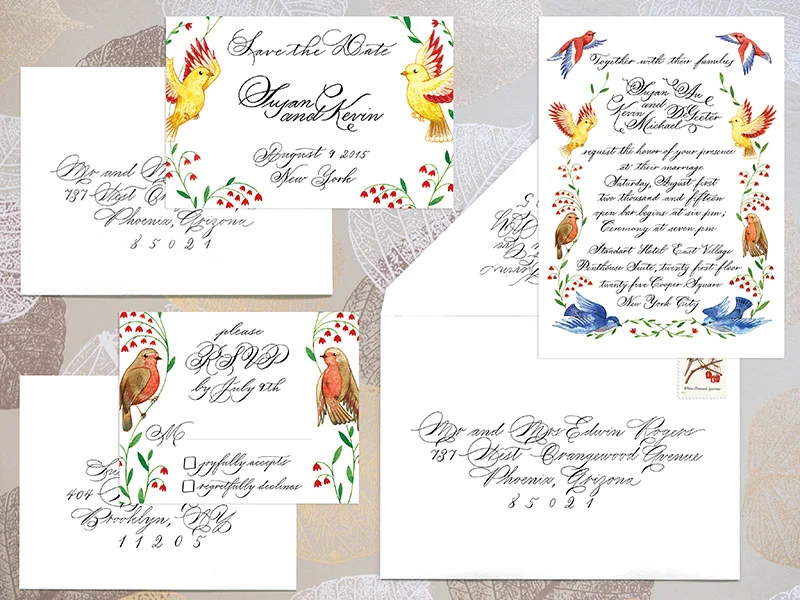 Save the Date
Susan
and Kevin
August 9 2015
New York
Mr and M
737 West O
Phoenix, Arizona
85021
Together with their families
Susan
and
Kevin
Michael
request the honor of your presence
at their marriage
Saturday, August first
two thousand and fifteen
open bar begins at six pm;
Ceremony at seven pm
Standart Hotel East Village
Penthouse Suite, twenty first floor
twenty five Cooper Square
New York City
please
RSVP
by July 9th
M
joyfully accepts
regretfully declines
404
Brooklyn, NY
11205
Mr and Mrs Edwin Rogers
737 West Orangewood Avenue
Phoenix, Arizona
85021